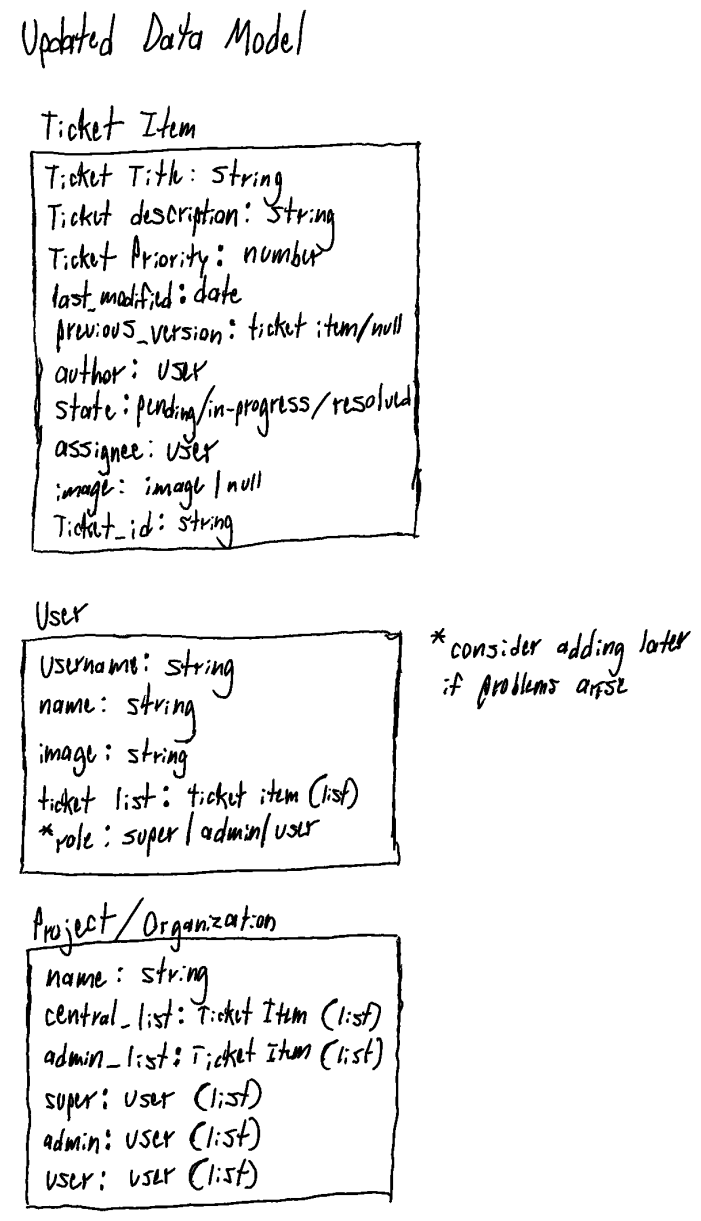 Updated Data Model
Ticket Item
Ticket Title: string
Ticket description: string
Ticket Priority: number
last_modified: date
previous_version: ticket item/null
author: user
state: pending/in-progress/resolved
assignee: user
image: image | null
Ticket_id: string
User
username: string
name: string
image: string
ticket list: ticket item (list)
*role: super | admin/user
*consider adding later
if problems arise
Project/Organization
name: string
central_list: Ticket Item (list)
admin_list: Ticket Item (list)
super: user (list)
admin: user (list)
user: user (list)